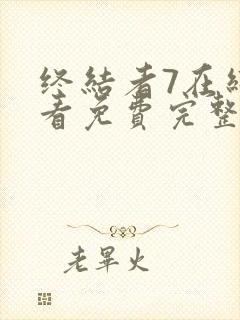 终结者7在线
看免费完整
老畢火